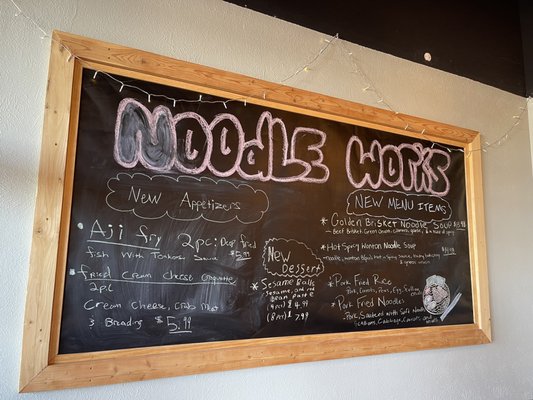 Noodle Works
New Appetizers
Aji fry 2pc: Deep fried
fish with Tonkatsu Sauce $5.99
Fried Cream Cheese Croquette
2pc
Cream Cheese, Crab Meat
& Breading $5.99
New
Dessert
* Sesame Balls
Sesame, and red
bean paste
(4pc) $4.99
(8pc) $7.99
NEW MENU ITEMS
* Golden Brisket Noodle Soup
- Beef Brisket, Green onion,
* Hot Spicy Wonton Noodle Soup
Noodle, Wonton in a
& green onion
* Pork Fried Rice
Pork, Carrots, Peas, Egg,
* Pork Fried Noodles
- Pork, Sauteed with Soft Noodle
Cabbage, Carrots and